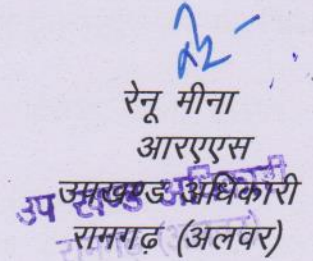 रेनू मीना
आरएएस
उपखण्ड अधिकारी
उप खण्ड अधिकारी
रामगढ़ (अलवर)